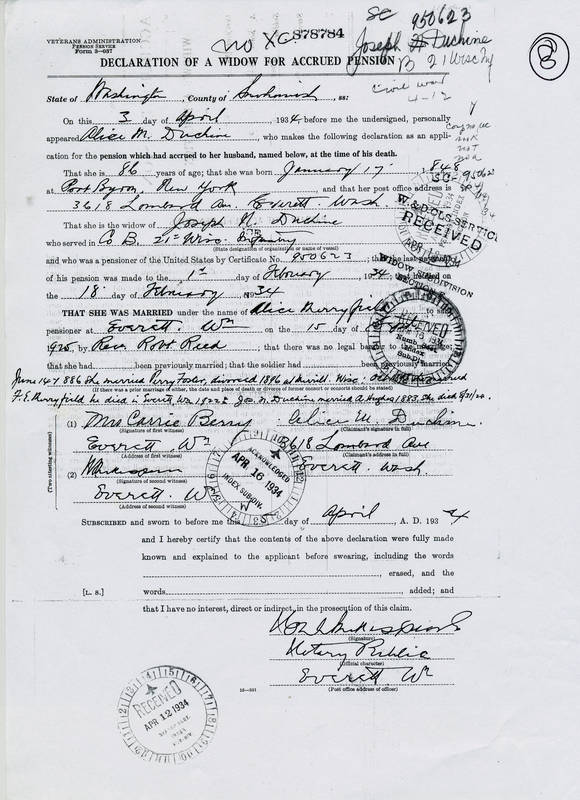 SC 950623
VETERANS ADMINISTRATION
PENSION SERVICE
Form 3—057
NO XC 878784
Joseph H Duchine
DECLARATION OF A WIDOW FOR ACCRUED PENSION
B 21 Wisc Inf
Civil War
4-12
State of Washington, County of Snohomish, ss:
On this 3 day of April, 1934 before me the undersigned, personally
appeared Alice M. Duchine, who makes the following declaration as an appli-
cation for the pension which had accrued to her husband, named below, at the time of his death.
That she is 86 years of age; that she was born January 17, 1848
at Port Byron, New York, and that her post office address is
3618 Lombard Ave. Everett Wash
That she is the widow of Joseph H. Duchine
who served in Co B. 21st Wisc. Infantry
(State designation of organization or name of vessel)
and who was a pensioner of the United States by Certificate No. 950623; that the last payment
of his pension was made to the 1st day of February, 1934, that he died on
the 18 day of February, 1934
THAT SHE WAS MARRIED under the name of Alice Merryfield to said
pensioner at Everett. Wn on the 15 day of
1925, by Rev. Robt Reed, that there was no legal barrier to the marriage;
that she had been previously married; that the soldier had been previously married
June 14 1886 she married Perry Foster, divorced 1896 at Merrill Wisc.
(If there was a prior marriage of either, the date and place of death or divorce of former consort or consorts should be stated)
F. E. Merryfield he died in Everett Wn Jos. H. Duchine married A Hughes 1883. She died
(Two attesting witnesses)
(1) Mrs Carrie Berry Alice M. Duchine
(Signature of first witness) (Claimant's signature in full)
Everett Wn 3618 Lombard Ave
(Address of first witness) (Claimant's address in full)
(2) Everett. Wash.
(Signature of second witness)
Everett. Wn
(Address of second witness)
SUBSCRIBED and sworn to before me this 3 day of April, A. D. 1934
and I hereby certify that the contents of the above declaration were fully made
known and explained to the applicant before swearing, including the words
, erased, and the
[L. S.] words, added; and
that I have no interest, direct or indirect, in the prosecution of this claim.
(Signature)
Notary Public
(Official character)
Everett Wn
(Post office address of officer)
W. & D. OLS SERVICE
RECEIVED
WIDOW SUBDIVISION
RECEIVED
ACKNOWLEDGED
APR 16 1934
INDEX SUBDIV.
RECEIVED
APR 12 1934